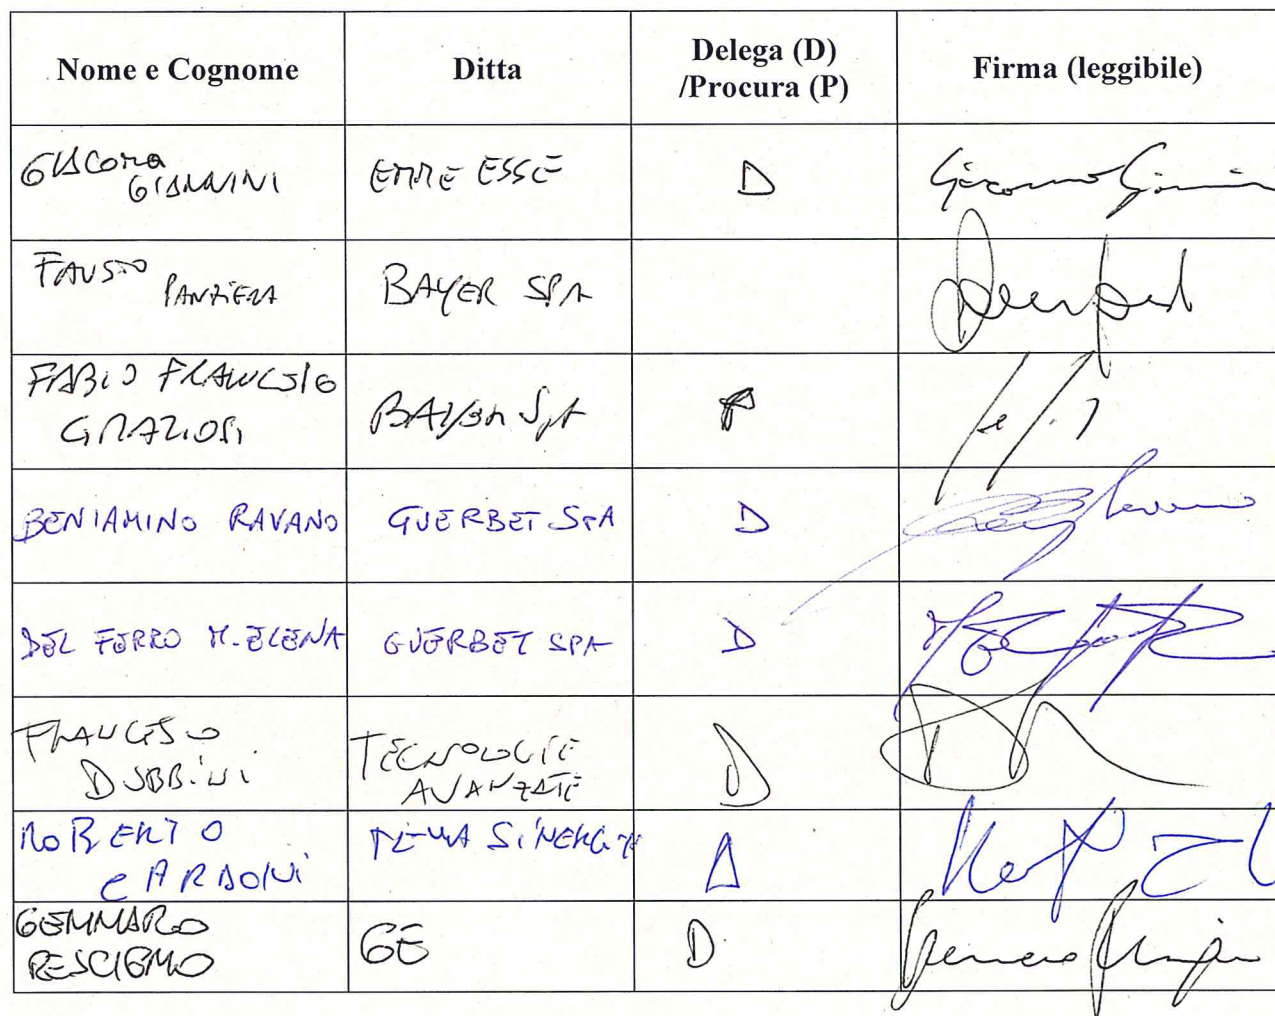 Nome e Cognome
Ditta
Delega (D)
/Procura (P)
Firma (leggibile)
GIACOMO
GIANNINI
EMME ESSE
D
Giacomo
FAUSTO
PANZIERA
BAYER SPA
FABIO FRANCESCO
GRAZIOSI
BAYER SpA
P
BENIAMINO RAVANO
GUERBET SPA
D
DEL FERRO M. ELENA
GUERBET SPA
D
FRANCESCO
DUBBINI
TECNOLOGIE
AVANZATE
D
ROBERTO
CARDOINI
SINERGIE
GENNARO
RESCIGNO
GE
D
Gennaro